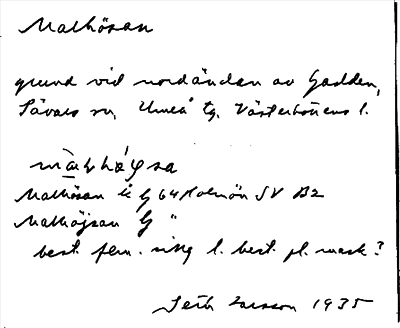 Malhösan
grund vid nordändan av Gadden,
Sävars sn, Umeå tg. Västerbottens l.
Malhösan Ek G 64 Holmön SV B2
Malhöjsan G "
best. fem. sing l. best. pl. mask?
Seth Larsson 1935